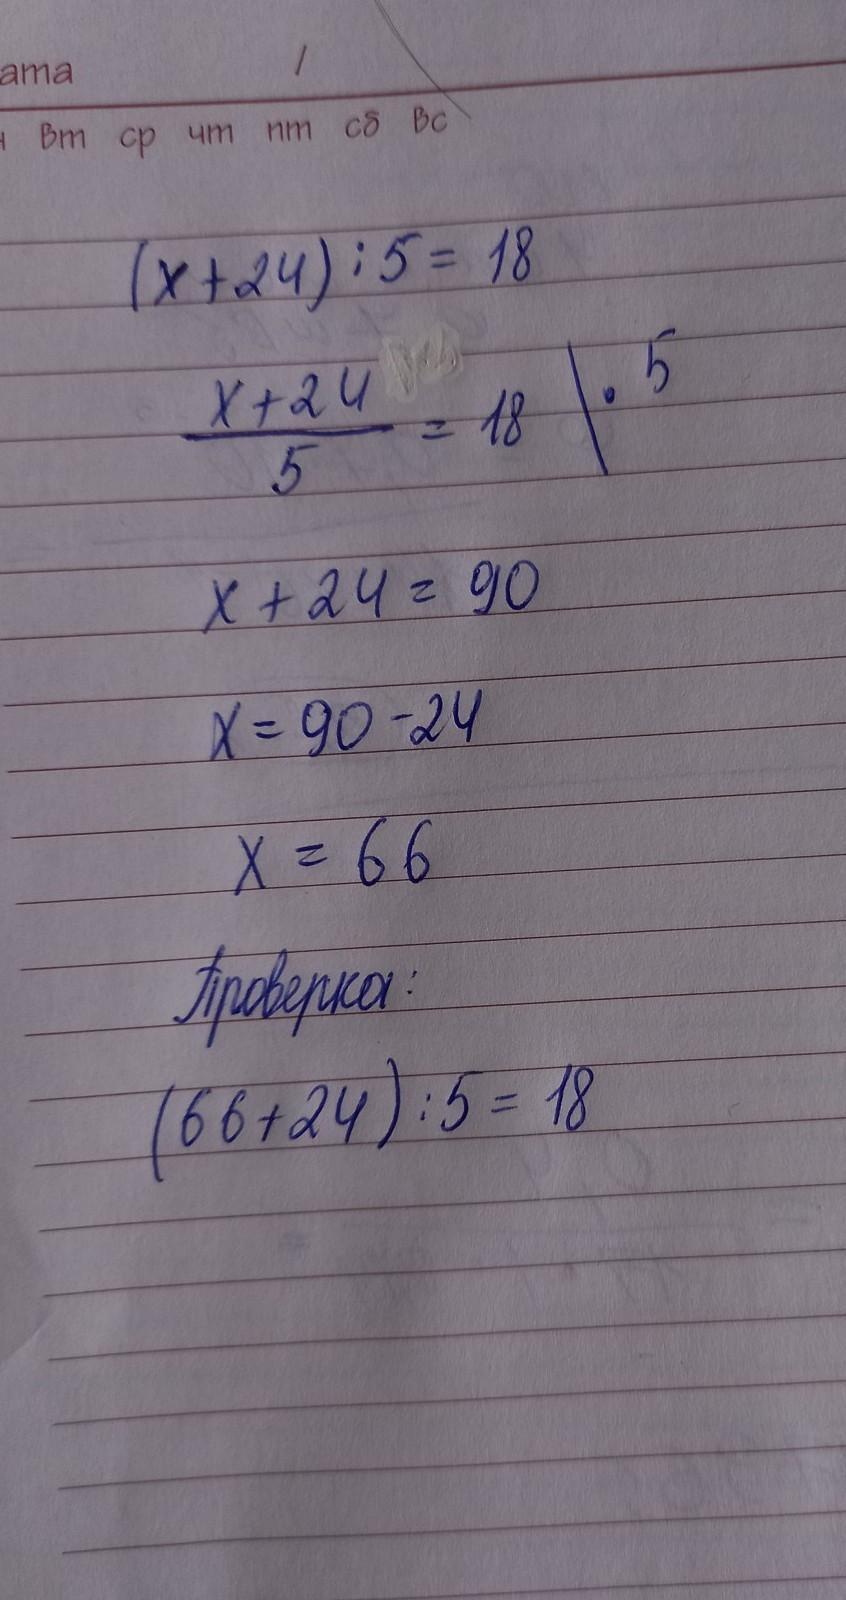 ата /
Вт ср чт пт сб Вс
(x+24):5=18
x+24
5
= 18 | · 5
x+24=90
x=90-24
x=66
Проверка:
(66+24):5=18